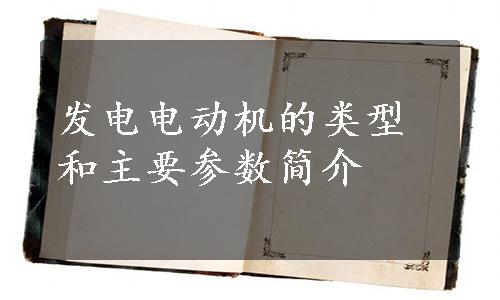 发电电动机的类型
和主要参数简介